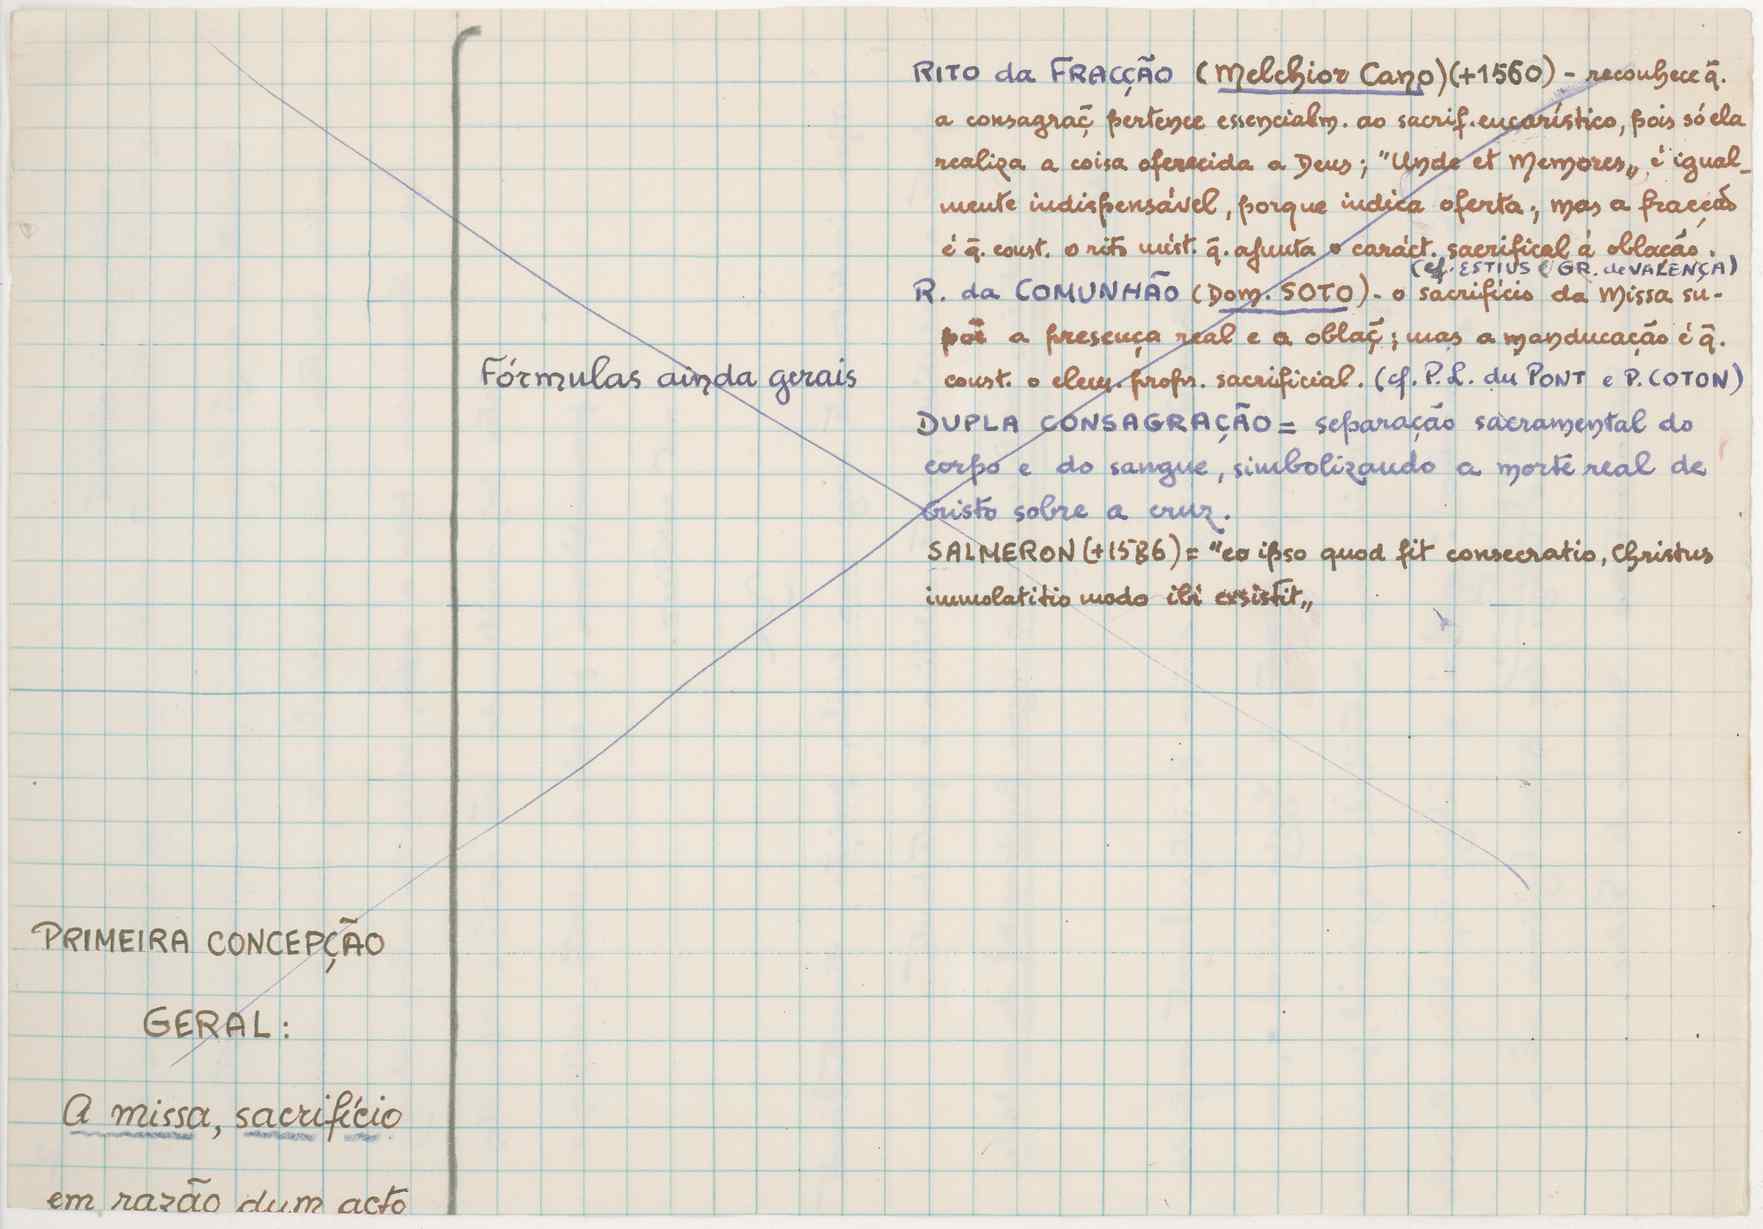 RITO da FRACÇÃO (Melchior Cano)(+1560) - reconhece q̃.
a consagraç̃ pertence essencialm. ao sacrif. eucarístico, pois só ela
realiza a coisa oferecida a Deus; "Unde et Memores„ é igual_
mente indispensável, porque indica oferta; mas a fracção
é q̃. const. o rito míst. q̃. ajunta o caráct. sacrifical á oblação.
(cf. ESTIUS e GR. de VALENÇA)
R. da COMUNHÃO (Dom. SOTO) - o sacrifício da Missa su-
põe a presença real e a oblaç̃; mas a manducação é q̃.
const. o elem. propr. sacrificial. (cf. P. L. du PONT e P. COTON)
Fórmulas ainda gerais
DUPLA CONSAGRAÇÃO = separação sacramental do
corpo e do sangue, simbolizando a morte real de
Cristo sobre a cruz.
SALMERON (+1586) = "eo ipso quod fit consecratio, Christus
immolatitio modo ibi exsistit„
PRIMEIRA CONCEPÇÃO
GERAL:
A missa, sacrifício
em razão dum acto